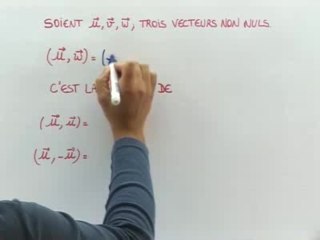 SOIENT u⃗, v⃗, w⃗, TROIS VECTEURS NON NULS.
(u⃗, w⃗) = (
C'EST LA DE
(u⃗, u⃗) =
(u⃗, -u⃗) =